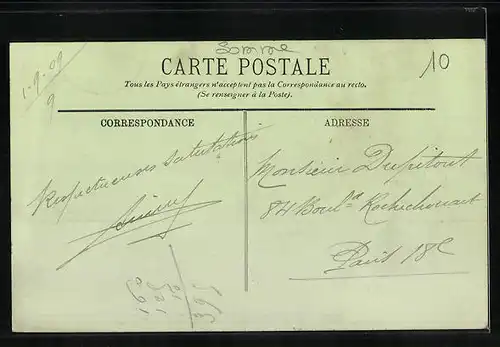 Somme
10
1-9-09
9
CARTE POSTALE
Tous les Pays étrangers n'acceptent pas la Correspondance au recto.
(Se renseigner à la Poste).
CORRESPONDANCE
Respectueuses Salutations
ADRESSE
Monsieur Dupitout
84 Boul.d Rochechouart
Paris 18e